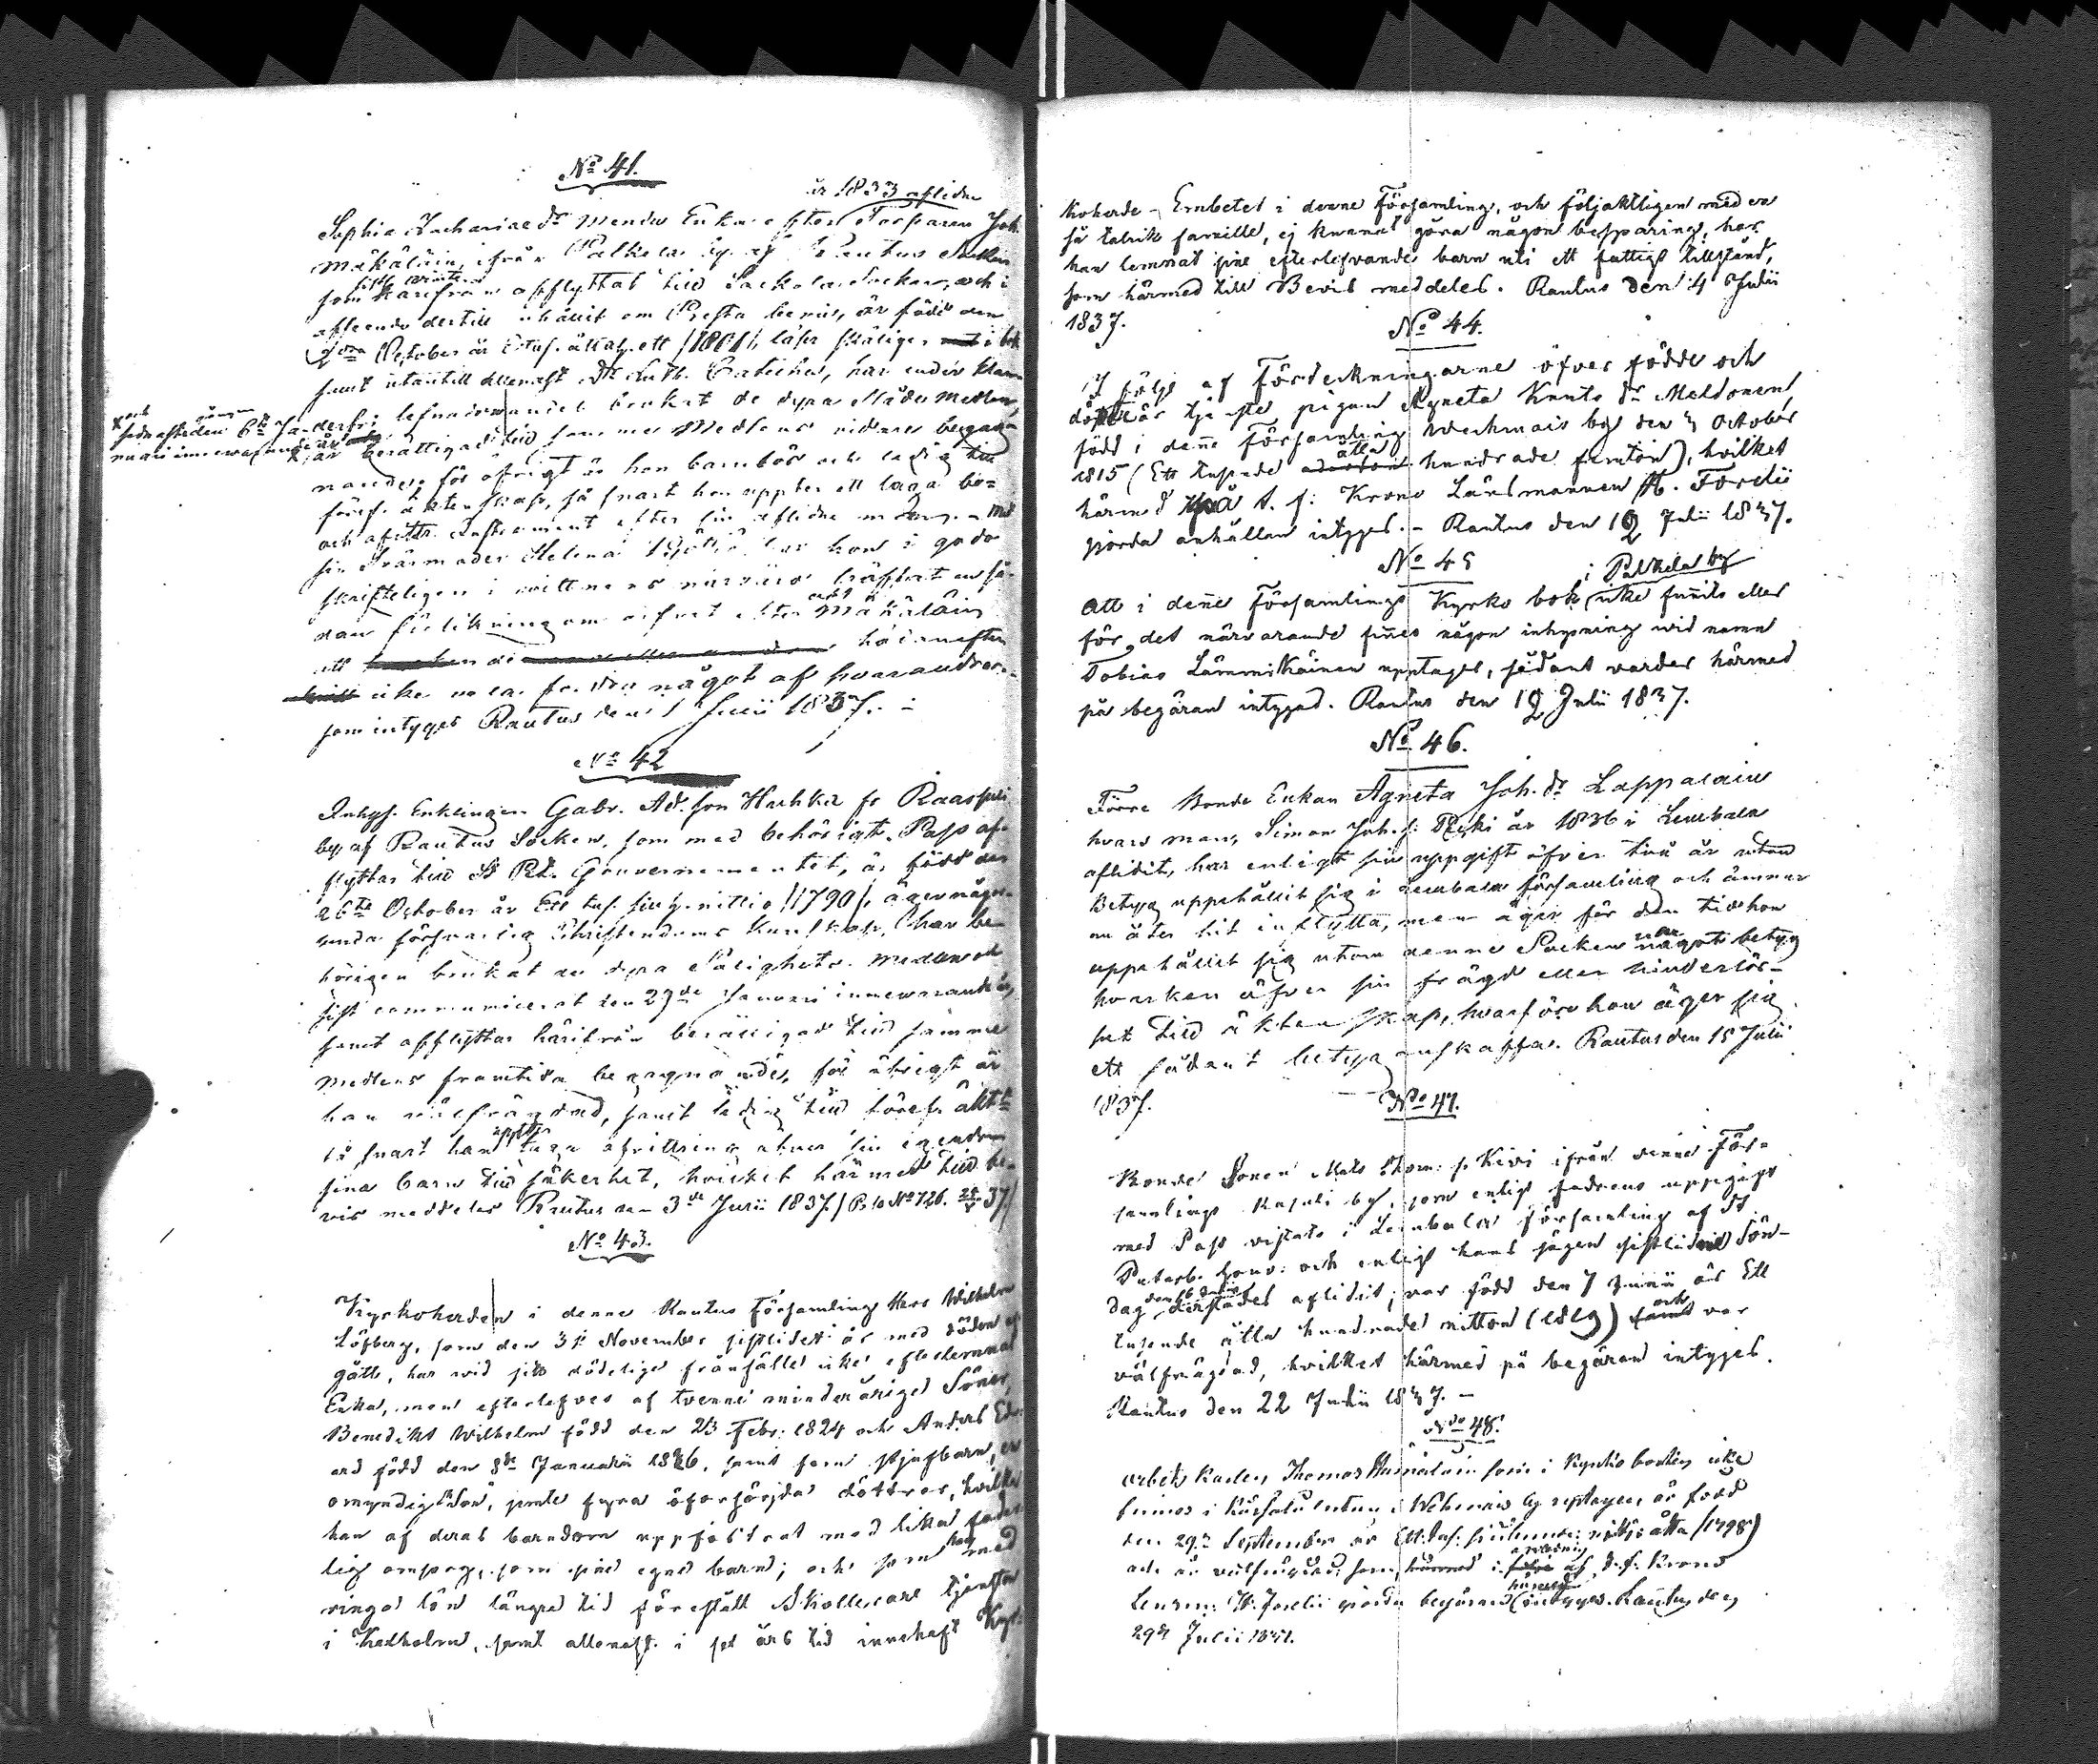 No 41.
år 1833 aflidne
Sophia Zachariae dr Enka efter Torparen Joh.
Mäkäläin, ifrån Palkela by af Rautus Socken
som sistl. vintern härifrån afflyttat till Sackola Socken, och i
afseende dertill anhållit om Presta bevis, är född den
October år Ett tus. åttah. ett /1801/, läser skäligen i bok
samt utantill allenast Dr Luth. Cateches, har under klan
derfri lefnadsvandel brukat de dyra Nåde Medlen,
och sednast den 6te Ja
nuari innevarande år
är berättigad till samma Medlens vidare begag
nande; för öfrigt är hon barnlös och ledig till
föresk. äktenskap, så snart hon uppter ett laga bo=
och afvittr. Instrument efter sin aflidne man. Med
sin Svärmoder Helena har hon i godo
skrifteligen i vittnens närvaro träffat en så-
dan förlikning om arfvet efter Mäkäläin
att de härefter
icke vidare fordra något af hvarandra,
som intygas Rautus den 1 Julii 1837.
No 42
Inhys. Enklingen Gabr. Ad. son Huhka fr. Raasuli
by af Rautus Socken, som med behörigt Pass af-
flyttar till St Pet. Gouvernementet, är född den
26te October år Ett tus. sjuh. nittio /1790/, äger någor-
lunda försvarlig Christendoms kunskap, har be-
hörigen brukat de dyra Salighets Medlen och
sist communicerat den 29de Januari innevarande år,
samt afflyttar härifrån berättigad till samma
Medlens framtida begagnande, för öfrigt är
han välfrägdad, samt ledig till föresk. äkt.
så snart han uppter laga afvittring öfver sin egendom
sina barn till säkerhet, hvilket härmed till be-
vis meddelas Rautus den 3de Julii 1837.
No 43.
Kyrkoherden i denne Rautus Församling Herr Wilhelm
Löfberg, som den 3je November sistledit år med döden af
gått, har vid sitt dödeliga frånfälle icke efterlemnat
Enka, men efterlefves af tvenne minderåriga Söner,
Benedikt Wilhelm född den 23 Febr: 1824 och Anders Edv
ard född den 8de Januarii 1826, samt fem styfbarn, en
omyndig Son, jemte fyra oförsörjda döttrar, hvilka
han af deras barndom uppfostrat med lika fader
lig omsorg, som sine egna barn; och som han med
ringa lön längre tid förestått Skollärare tjensten
i Kexholm, samt allenast i sex års tid innehaft Kyr-
koherde-Embetet i denne Församling, och följaktligen med en
så talrik famille, ej kunnat göra någon besparing, har
han lemnat sine efterlefvande barn uti ett fattigt tillstånd,
som härmed till Bevis meddelas. Rautus den 4 Julii
1837.
No 44.
I följe af Förteckningarne öfver födde och
döpte är tjenste pigan Agneta Knuts dr Meldonen,
född i denne Församling Weckmais by den October
1815 (Ett tusende åtta hundrade femton), hvilket
härmed på t. f: Krono Länsmannen H. Forelii
gjorda anhållan intygas. - Rautus den 12 Julii 1837.
No 45
Att i denne Församlings Kyrko bok i Palkela by icke funnits eller
för det närvarande finnes någon inhysning vid namn
Tobias Lämmikäinen upptagen, sådant varder härmed
på begäran intygad. Rautus den 12 Julii 1837.
No 46.
Förre Bonde Enkan Agneta Joh. dr Lappalain
hvars man, Simon Joh. s: år 1836 i Lembala
aflidit, har enligt sin uppgift öfver två år utan
Betyg uppehållit sig i Lembala församling och ämnar
nu åter hit inflytta, men äger för den tid hon
uppehållit sig utom denne Socken något betyg
hvarken öfver sin frägd eller hinderlös-
het till äktenskap, hvarföre hon äger sig
ett sådant betyg anskaffa. Rautus den 15 Julii
1837.
No 47.
Bonde Sonen Mats Thom: s. Kivi ifrån denne För=
samlings Rasuli by, som enligt fadrens uppgift
med Pass vistats i Lembala församling af St.
Petersb. Gouv: och enligt hans sägen sistlidne Sön-
dag den 16 dennes derstädes aflidit; var född den 7 Junii år Ett
tusende åtta hundrade nitton (1819) och var
välfrägdad, hvilket härmed på begäran intygas.
Rautus den 22 Julii 1837. -
No 48.
Arbets Karlen Thomas som i Kyrko boken icke
finnes i by upptagen, är född
den 29de September år Ett. tus. sjuhundr: nittio åtta (1798)
och är välfrägdad, som i anledning af t. f. Krono
Länsm: H. Forelii gjorda begäran härmed intygas. Rautus den
29de Julii 1837.